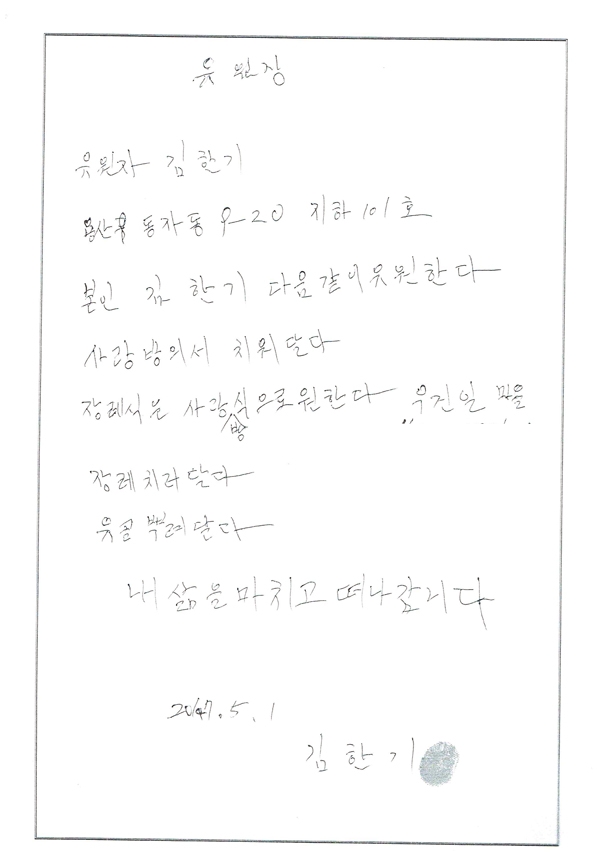 유원장
유원자 김한기
용산구 동자동 9-20 지하 101호
본인 김한기 다음같이 유원한다
사랑방의서 치워달다
장레식은 사랑방식으로원한다 우건일
장레치라달다
유골 뿌려달다
내 삶을 마치고 떠나갑니다
2017.5.1
김한기